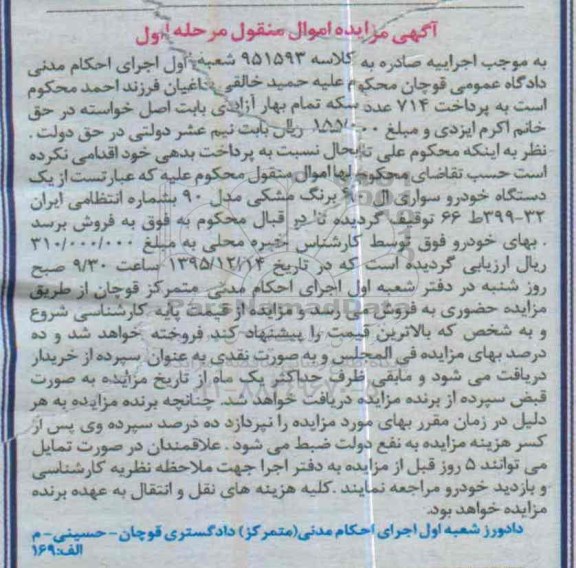 آگهی مزایده اموال منقول مرحله اول
به موجب اجراییه صادره به کلاسه ۹۵۱۵۹۳ شعبه اول اجرای احکام مدنی
دادگاه عمومی قوچان محکوم علیه حمید خالقی باغیان فرزند احمد محکوم
است به پرداخت ۷۱۴ عدد سکه تمام بهار آزادی بابت اصل خواسته در حق
خانم اکرم ایزدی و مبلغ ریال بابت نیم عشر دولتی در حق دولت .
نظر به اینکه محکوم علی تابحال نسبت به پرداخت بدهی خود اقدامی نکرده
است حسب تقاضای محکوم لها اموال منقول محکوم علیه که عبارتست از یک
دستگاه خودرو سواری ال ۹۰ برنگ مشکی مدل ۹۰ بشماره انتظامی ایران
۳۲-۳۹۹ط ۶۶ توقیف گردیده تا در قبال محکوم به فوق به فروش برسد
. بهای خودرو فوق توسط کارشناس خبره محلی به مبلغ ۳۱۰/۰۰۰/۰۰۰
ریال ارزیابی گردیده است که در تاریخ ۱۳۹۵/۱۲/۱۴ ساعت ۹/۳۰ صبح
روز شنبه در دفتر شعبه اول اجرای احکام مدنی متمرکز قوچان از طریق
مزایده حضوری به فروش می رسد و مزایده از قیمت پایه کارشناسی شروع
و به شخص که بالاترین قیمت را پیشنهاد کند فروخته خواهد شد و ده
درصد بهای مزایده فی المجلس و به صورت نقدی به عنوان سپرده از خریدار
دریافت می شود و مابقی ظرف حداکثر یک ماه از تاریخ مزایده به صورت
قبض سپرده از برنده مزایده دریافت خواهد شد. چنانچه برنده مزایده به هر
دلیل در زمان مقرر بهای مورد مزایده را نپردازد ده درصد سپرده وی پس از
کسر هزینه مزایده به نفع دولت ضبط می شود . علاقمندان در صورت تمایل
می توانند ۵ روز قبل از مزایده به دفتر اجرا جهت ملاحظه نظریه کارشناسی
و بازدید خودرو مراجعه نمایند .کلیه هزینه های نقل و انتقال به عهده برنده
مزایده خواهد بود.
دادورز شعبه اول اجرای احکام مدنی(متمرکز) دادگستری قوچان- حسینی- م
الف:۱۶۹